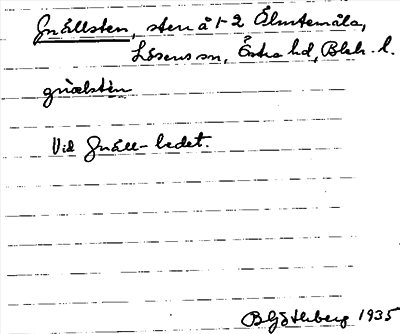 Gnällsten, sten å 1-2 Elmtemåla,
Lösens sn, Östra hd, Blek. l.
gnälstèn
Vid Gnäll-ledet.
B Götlberg 1935